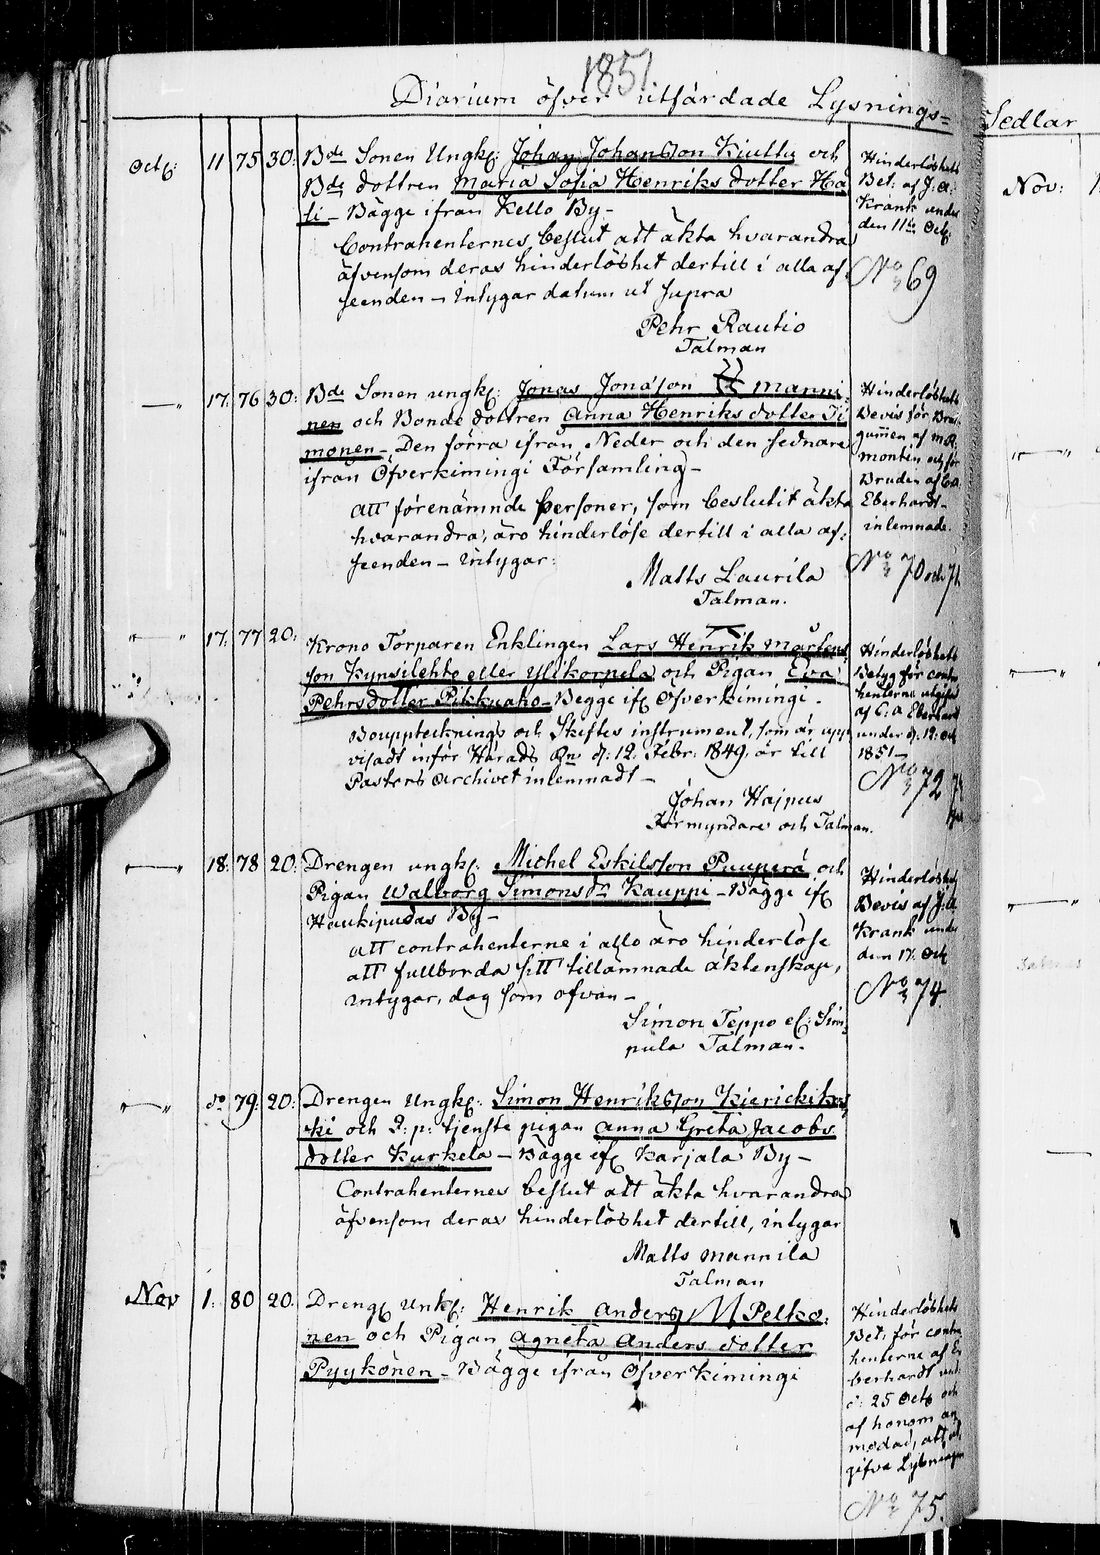 1851
Diarium öfver utfärdade Lysnings=
Sedlar
Octb: 11 75 30: Bde Sonen Ungk: Johan Johansson Kiuttu och
Bde dottren Maria Sofia Henriks dotter Ha
li - Bägge ifrån Kello By -
Contrahenternes beslut att äkta hvarandra
äfvensom deras hinderlöshet dertill i alla af-
seenden - intygar datum ut supra
Pehr Rautio
Talman
Hinderlöshets
Bet: af J: A:
Krank under
den 11te Octb:
No 69
Nov:
—"— 17: 76 30: Bde Sonen ungk: Jonas Jonasson Manni-
nen och Bonde dottren Anna Henriks dotter Ti
monen - Den förra ifrån Neder och den sednare
ifrån Öfverkimingi Församling -
att förenämnde personer, som beslutit äkta
hvarandra, äro hinderlöse dertill i alla af-
seenden - intygar:
Matts Laurila
Talman.
Hinderlöshets
Bevis för Bru-
gummen af
Monten och för
Bruden af C. A.
Eberhardt -
inlemnade.
No 70 och 71.
—"— 17: 77 20: Krono Torparen Enklingen Lars Henrik Mårtens
son Kynsilehto eller Ylikorpela och Pigan Eva
Pehrsdotter Pikkuaho - Begge if: Öfverkimingi -
Bouppteckning och Skiftes instrument, som är upp
visadt inför Härads Rn d: 12: Febr: 1849, är till
Pastors Archivet inlemnadt -
Johan Hajpus
Förmyndare och Talman.
Hinderlöshets
Betyg för contra
henterne utgifne
af C: A Eberhardt
under d: 12: Oct
1851 -
No 72
—"— 18: 78 20: Drengen ungk: Michel Eskilsson Puuperä och
Pigan Walborg Simons dr Kauppi - Bägge if:
Haukipudas By -
att contrahenterne i allo äro hinderlöse
att fullborda sitt tillämnade äktenskap,
intygar, dag som ofvan -
Simon Teppo el: Sim-
pula Talman -
Hinderlöshets
Bevis af J: A
Krank under
den 17. Oct
No 74.
—"— do 79. 20: Drengen Ungk: Simon Henriksson
ki och tjenste pigan Anna Greta Jacobs
dotter Kurkela - Bägge if: Karjala By -
Contrahenternes beslut att äkta hvarandra
äfvensom deras hinderlöshet dertill, intygar
Matts Mannila
Talman
Nov 1: 80 20: Dreng: Unk: Henrik Anders Pelko-
nen och Pigan Agneta Anders dotter
Pyykönen - Bägge ifrån Öfverkimingi
Hinderlöshets
Bet: för contra
henterne af E
berhardt und
d: 25 Octb och
af honom an
modad, att ut
gifva Lysningen
No 75.